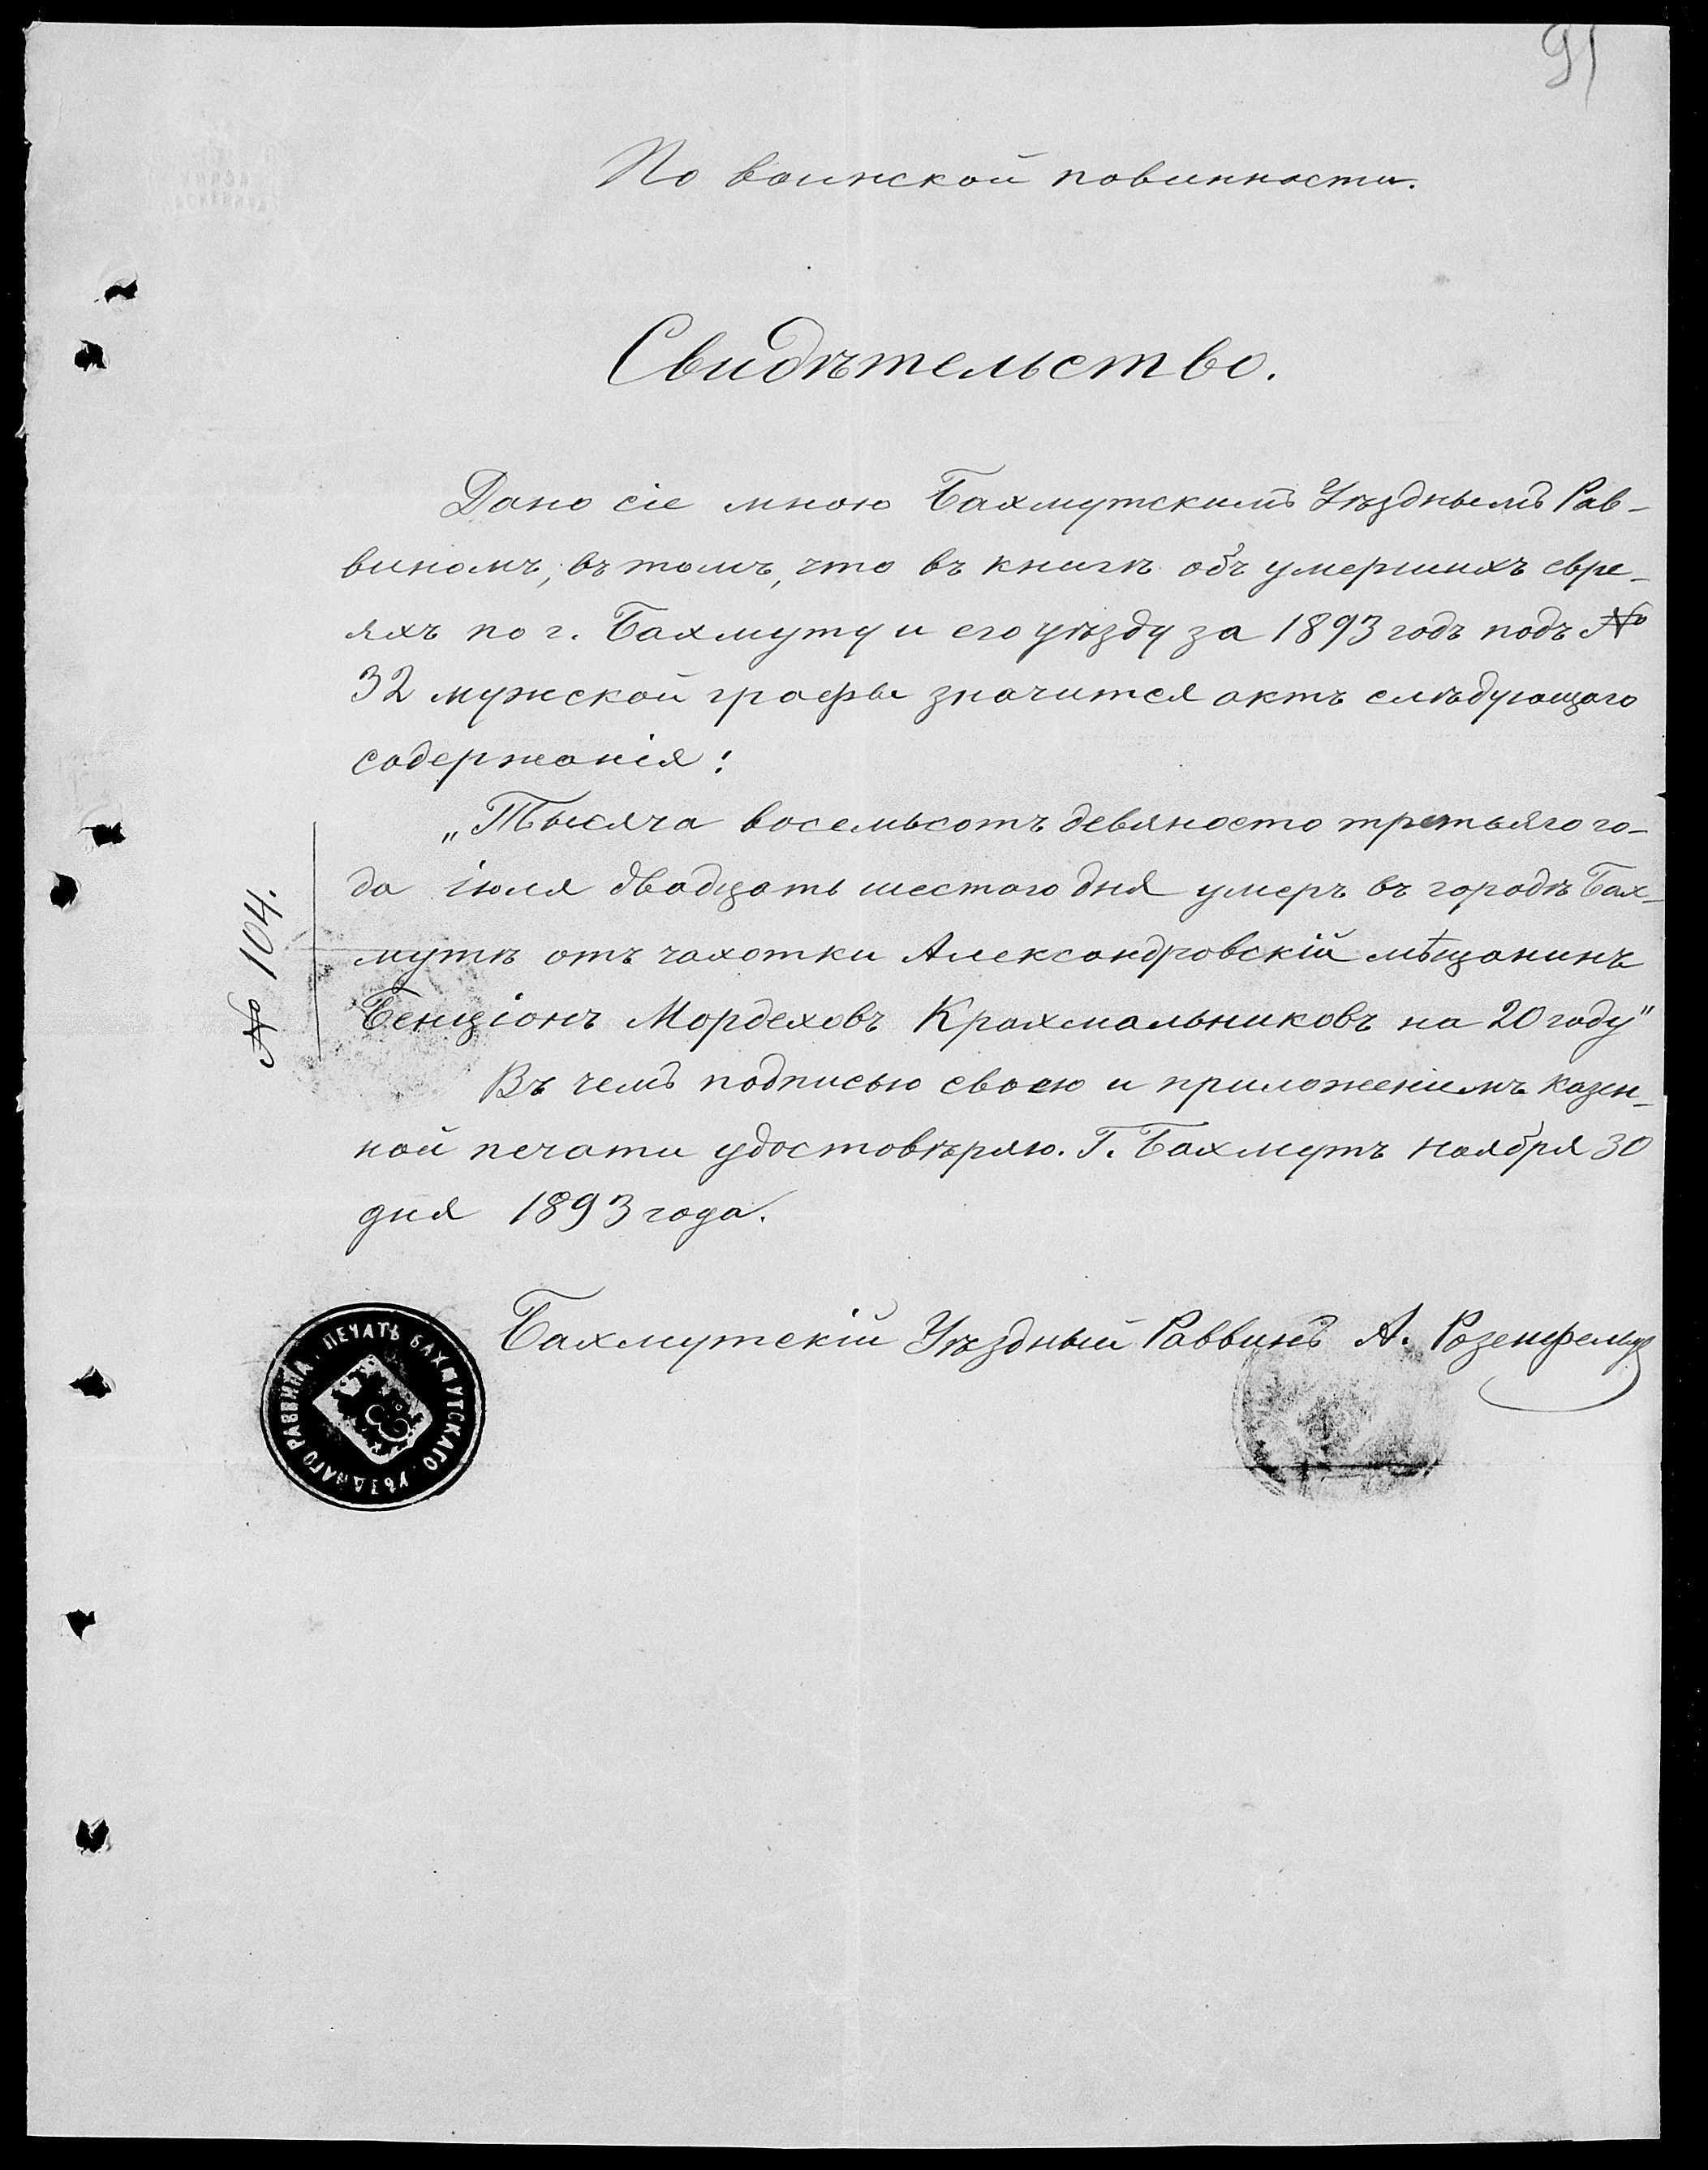 91
По воинской повинности.
Свидѣтельство.
Дано сіе мною Бахмутскимъ Уѣзднымъ Рав-
виномъ, въ томъ, что въ книгѣ объ умершихъ евре-
яхъ по г. Бахмуту и его уѣзду за 1893 годъ подъ №
32 мужской графы значится актъ слѣдующаго
содержанія:
„Тысяча восемьсотъ девяносто третьяго го-
да іюля двадцать шестого дня умеръ въ городѣ Бах-
мутѣ отъ чахотки Александровскій мѣщанинъ
Бенціонъ Мордеховъ Крахмальниковъ на 20 году"
Въ чемъ подписью своею и приложеніемъ казен-
ной печати удостовѣряю. Г. Бахмутъ ноября 30
дня 1893 года.
№ 104.
Бахмутскій Уѣздный Раввинъ А. Розенфельд
ПЕЧАТЬ БАХМУТСКАГО УѢЗДНАГО РАВВИНА